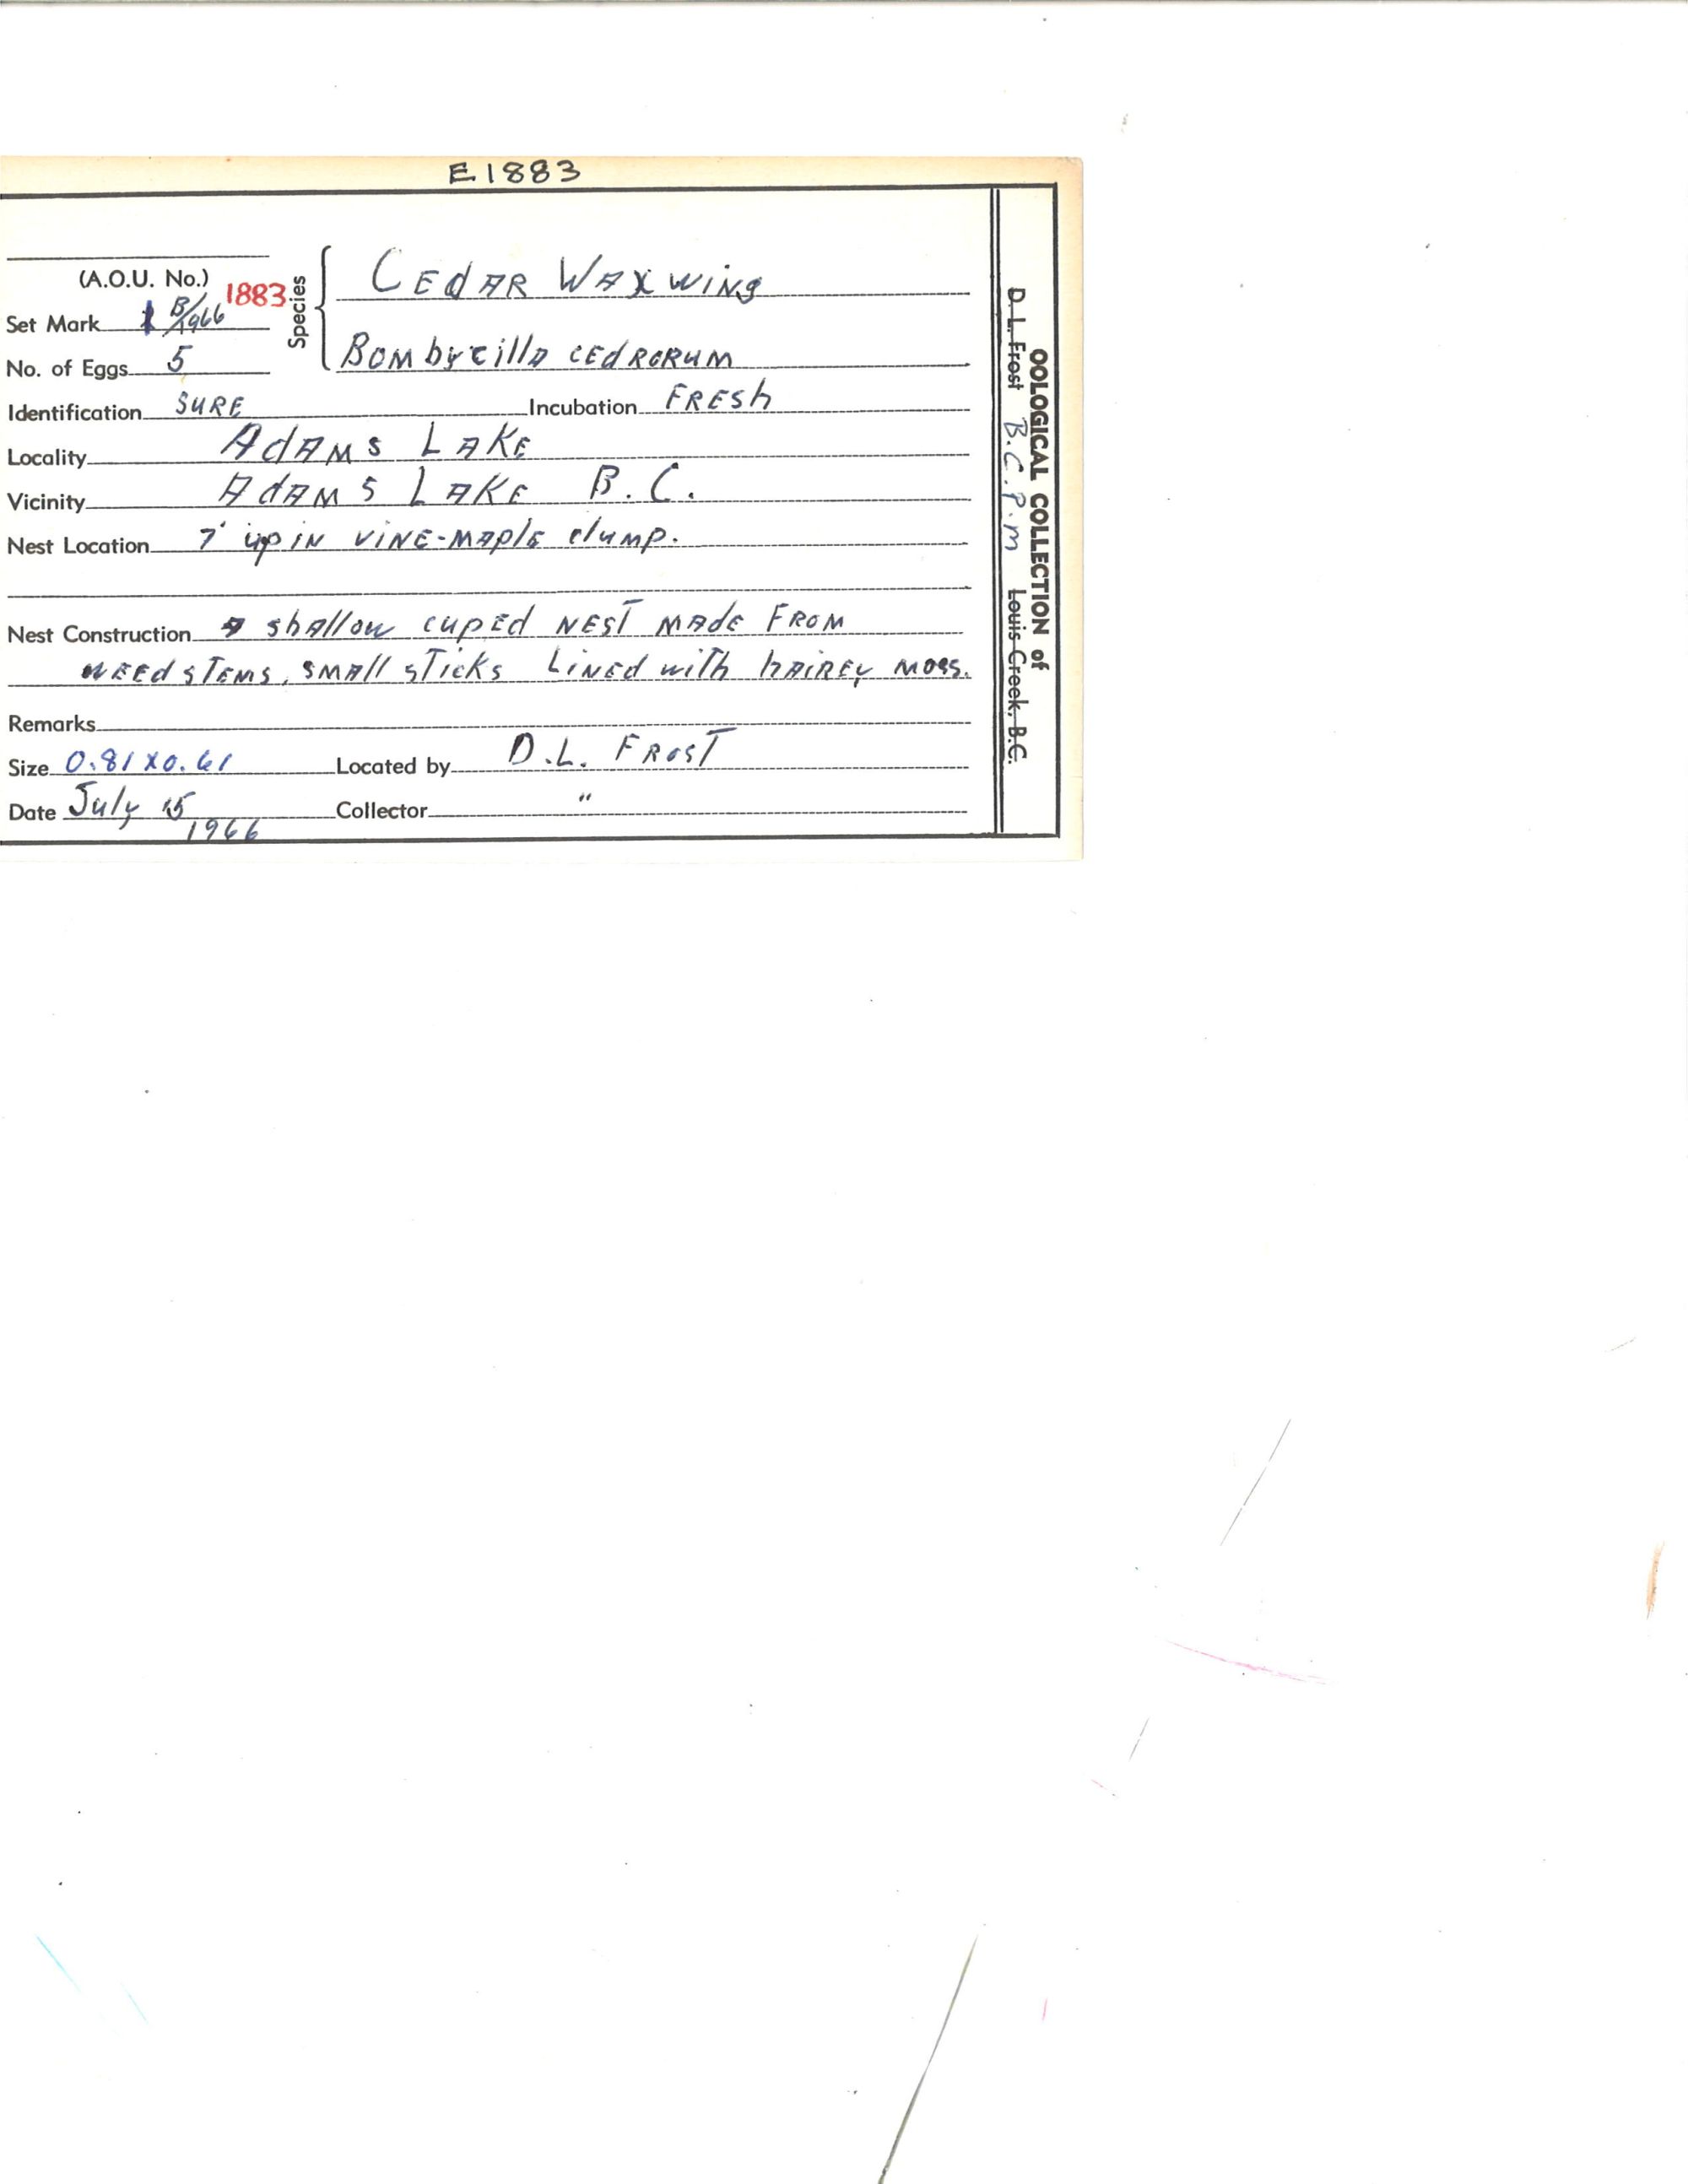 E1883
(A.O.U. No.)
1883
Set Mark B/1966
No. of Eggs 5
Species
CEdAR WAXWiNg
BOMbycillA CEdRORUM
Identification SURE Incubation FRESh
Locality AdAMS LAKE
Vicinity AdAMS LAKE B.C.
Nest Location 7' up iN ViNE-MAplE clUMp.
Nest Construction A ShAllow CUpEd NEST MAdE FROM
WEEd STEMS, SMAll STicKs LiNEd with hAiREy MOSS.
Remarks
Size 0.81 X 0.61 Located by D.L. FROST
Date July 15 1966 Collector "
OOLOGICAL COLLECTION of
D. L. Frost B.C.P.M Louis Creek, B.C.